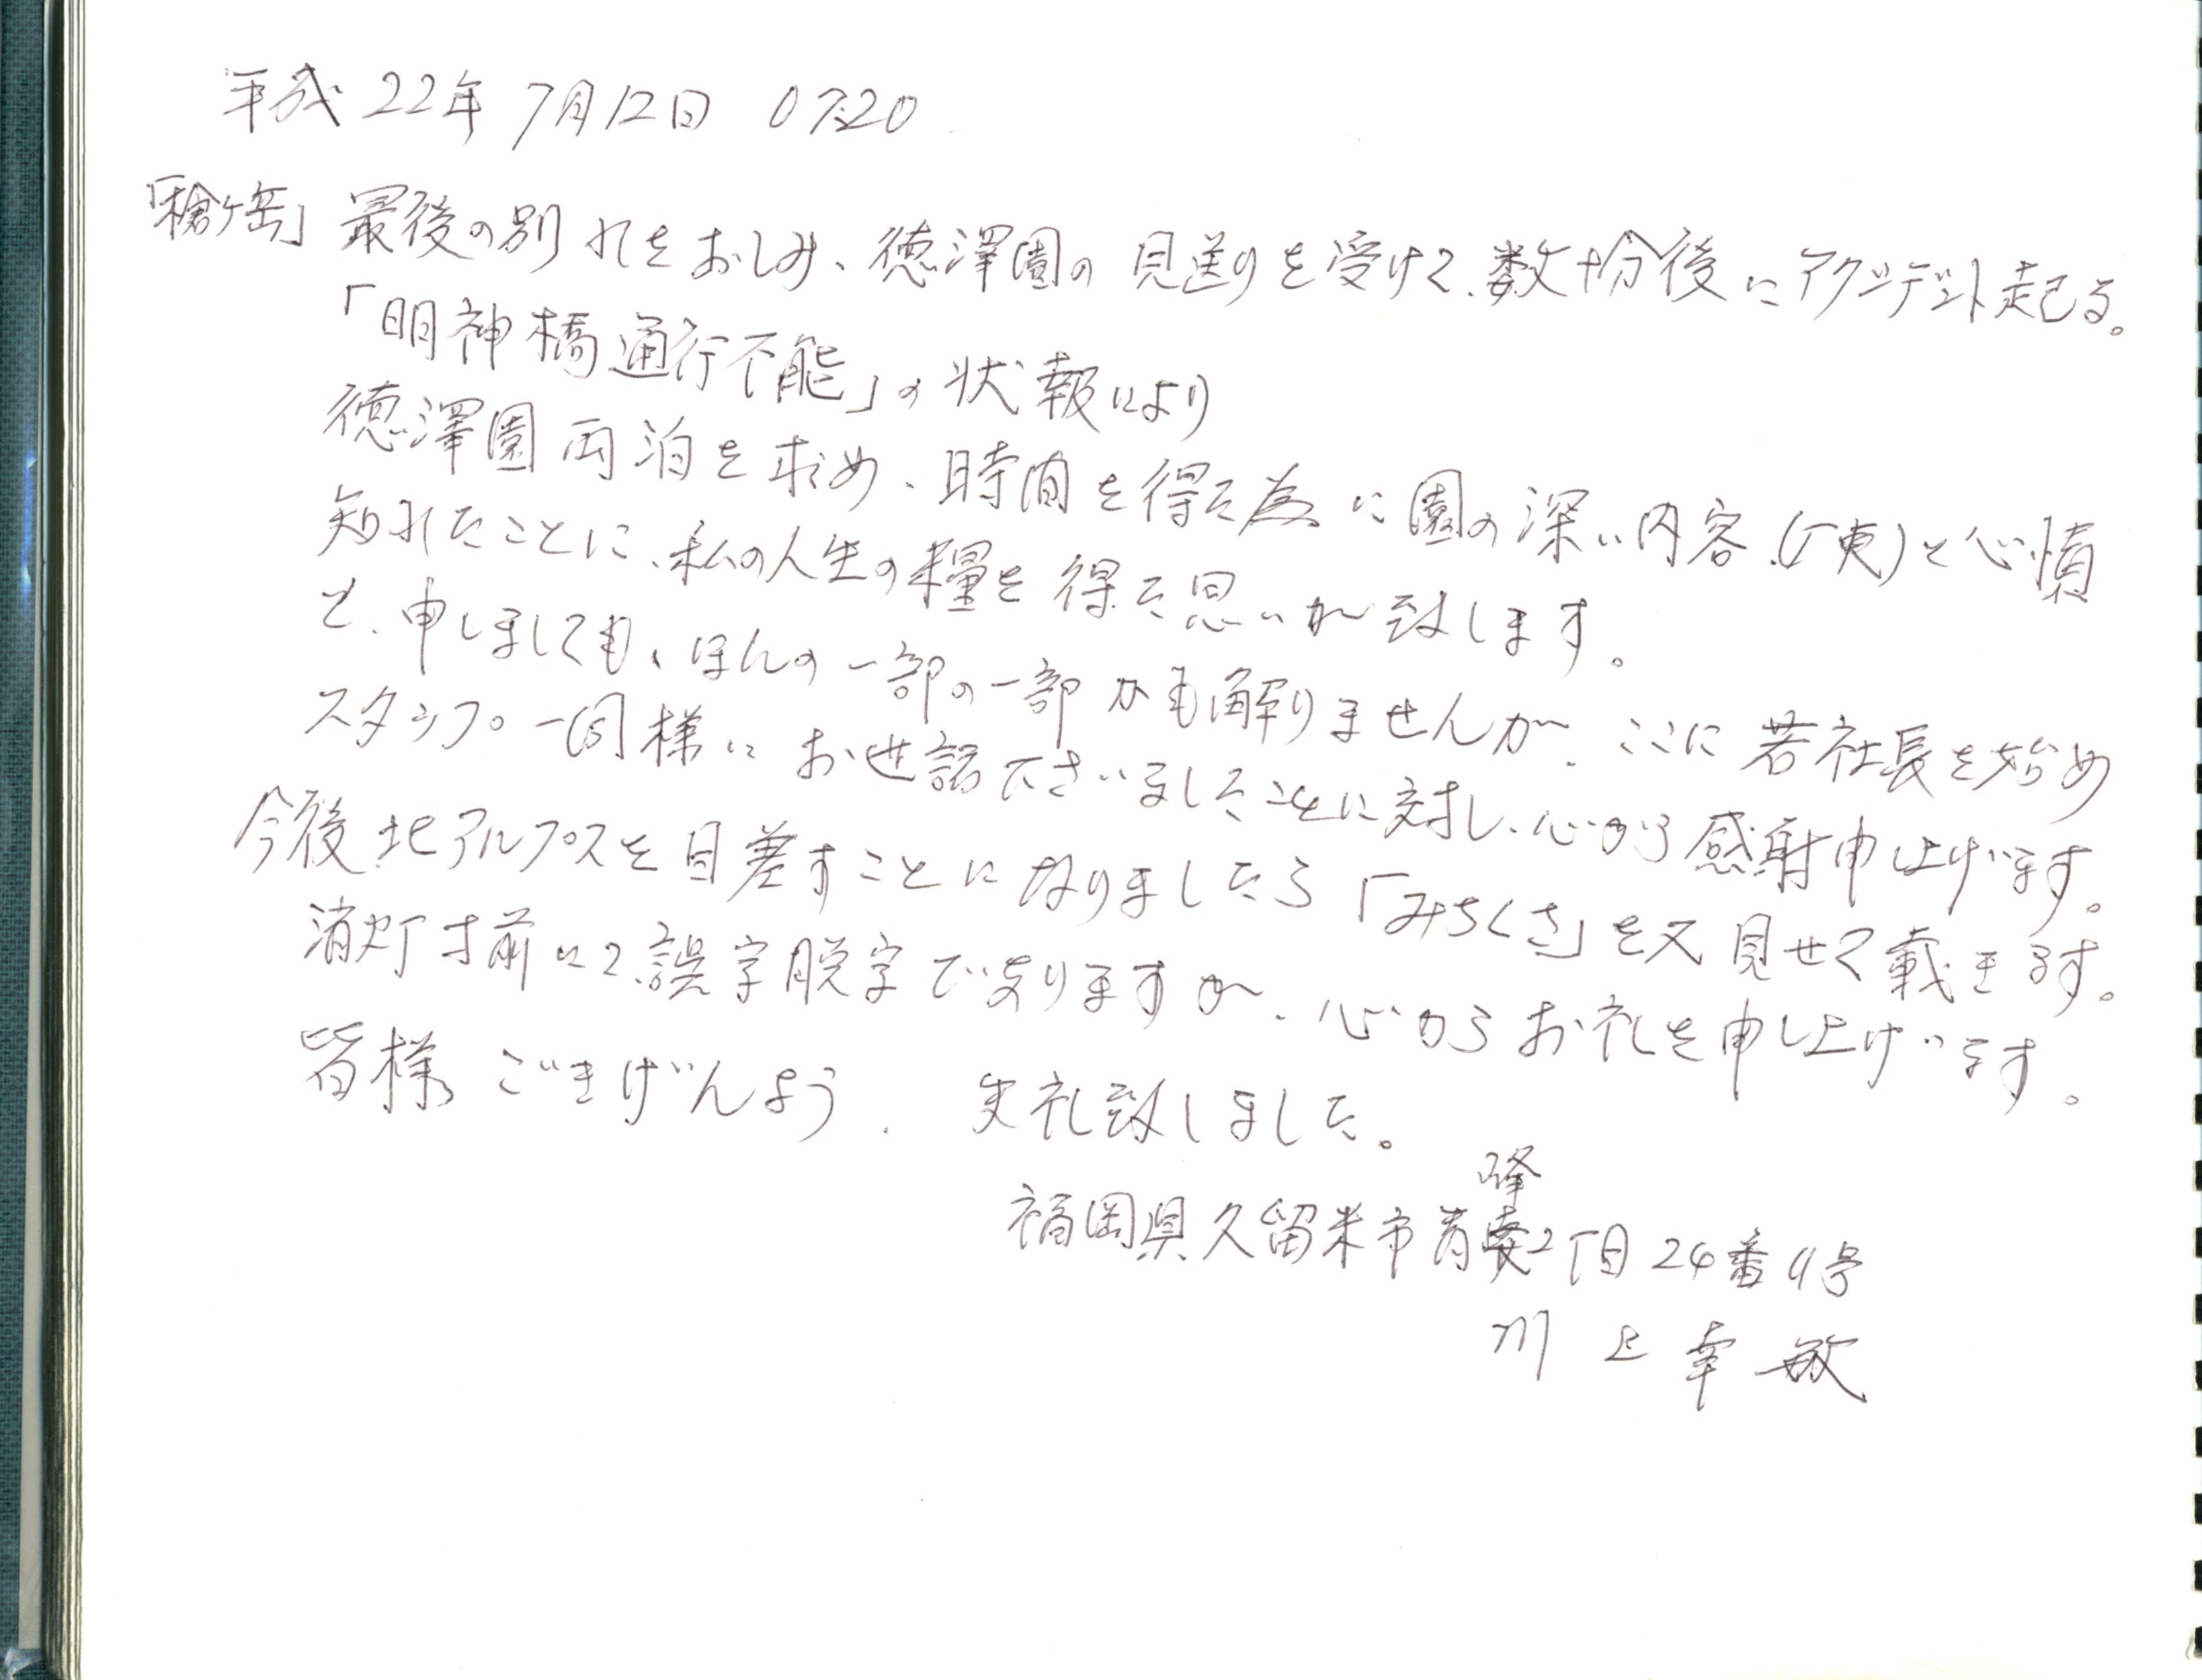 平成22年7月12日 07:20
「槍ヶ岳」最後の別れをおしみ、徳澤園の見送りを受けて、数十分後にアクシデント起る。
「明神橋通行不能」の状報により
徳澤園両泊を求め、時間を得た為に園の深い内容、(歴史)と心情
知れたことに、私の人生の糧を得た思いが致します。
と、申しましても、ほんの一部の一部かも解りませんが、ここに若社長を始め
スタッフ一同様にお世話下さいましたことに対し、心から感射申し上げます。
今後北アルプスを目差すことになりましたら「みちくさ」を又見せて載きます。
消灯寸前にて、誤字脱字でありますが、心からお礼を申し上げます。
皆様ごきげんよう. 失礼致しました。
峰
福岡県久留米市青 2丁目24番9号
川上幸敏